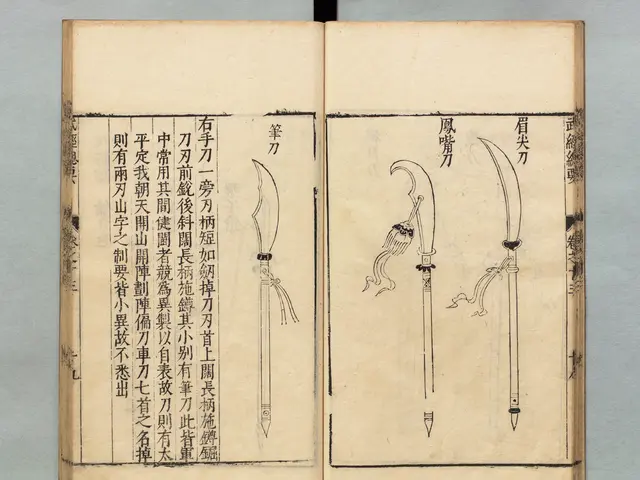 武經總要
卷之十三
十九
眉尖刀
鳳嘴刀
筆刀
右手刀一旁刃柄短如劒掉刀刃首上闊長柄施鐏
刀刃前銳後斜闊長柄施鐏其小別有筆刀此皆軍
中常用其間健鬬者競為異製以自表故刀則有太
平定我朝天開山開陣劃陣偏刀車刀七首之名掉
則有兩刃山字之制要皆小異故不悉出
武經總要
卷之十三
十九